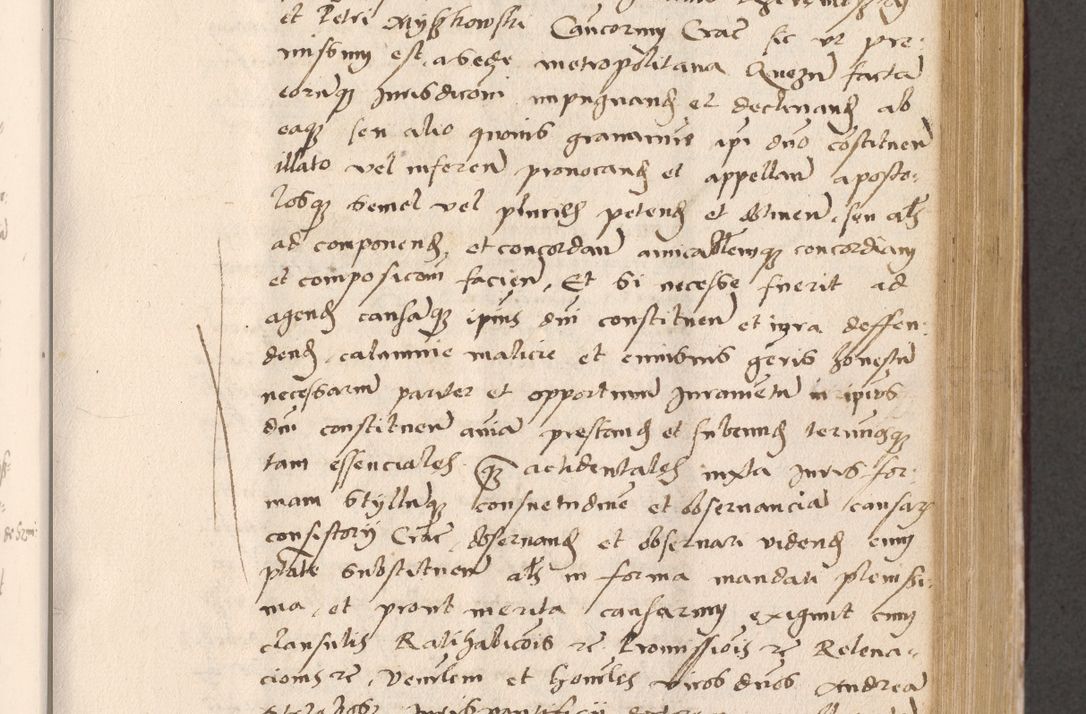 et Petri Mÿsskowski Cancorum Crac sic ut pre-
missum est a sede metropolitana Gnezn facta
eorumque Jurisdicom impugnand et declinand ab
eaque seu alio quovis gravamine ipi dno constituen
illato vel inferen provocand et appelland aposto-
losque semel vel plurieh petend et obtinen seu als
ad componend, et concordan amicabilemque concordiam
et composicom facien, Et si necesse fuerit ad
agend causasque ipius dni constituen et iura deffen-
dend calumnie malicie et cuiusuis generis honestu
necessarium pariter et opportunum Juramentu in ipius
dni constituen aniam prestand et subeund terminosque
tam essenciales quam accidentales iuxta Juris for-
mam Styllumque consuetudine et observancia causar
consistorÿ Crac observand et observari vidend cum
ptate substituen als in forma mandati plenissi-
ma, et prout merita causarum exigunt cum
clausulis Ratihabicois re Promissiois re Releva-
ciois re, Venlem et honles viros dnos Andrea